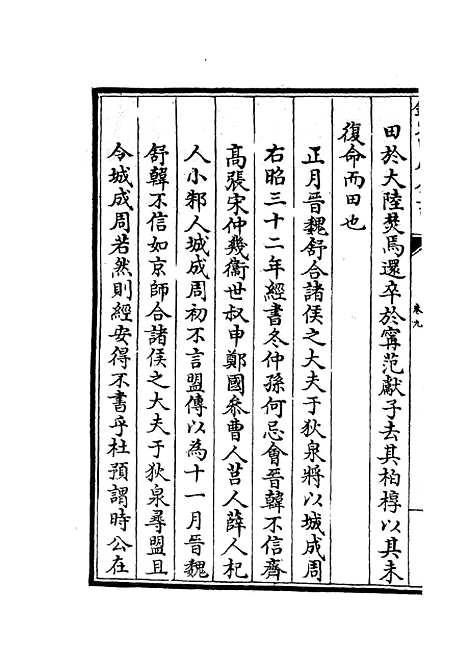 田於大陸焚焉還卒於甯范獻子去其柏椁以其未
復命而田也
正月晉魏舒合諸侯之大夫于狄泉將以城成周
右昭三十二年經書冬仲孫何忌會晉韓不信齊
髙張宋仲幾衞世叔申鄭國參曹人莒人薛人杞
人小邾人城成周初不言盟傳以為十一月晉魏
舒韓不信如京師合諸侯之大夫于狄泉尋盟且
令城成周若然則經安得不書乎杜預謂時公在
卷九